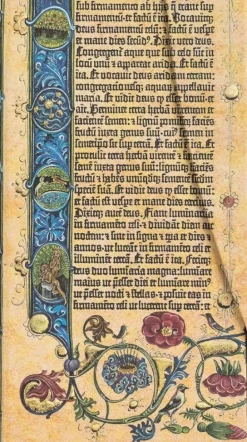 sub firmamento ab hijs q̄ erant sup
firmamentū: et factū ē ita. Vocavitq;
deus firmamentū celū: & factū ē vespe
et mane dies secūd9. Dixit vero deus.
Congregent̄ aque que sub celo sūt in
locū unū et appareat arida. Et factū ē
ita. Et vocavit deus aridam terram:
congregacionesq; aquaꝝ appellavit
maria. Et vidit deus qꝫ esset bonū et
ait. Germinet terra herbā virentem et
facientē semen: et lignū pomiferꝫ faciēs
fructū iuxta genus suū: cui9 semen in
semetipso sit sup terrā. Et factū ē ita. Et
protulit terra herbā virentē et facientē
semē iuxta genus suū: lignūqꝫ faciēs
fructū & habēs unūqdqꝫ sementē scdm
speciē suā. Et vidit deus qꝫ esset bonū:
et factū est vespe et mane dies tercius.
Dixitqꝫ autē deus. Fiant luminaria
in firmamēto celi: & dividāt diem ac
noctem: & sint in signa & tpa et dies &
annos: ut luceāt in firmamēto celi et
illuminēt terrā. Et factū ē ita. Fecitqꝫ
deus duo luminaria magna: luminare
maius ut pesset diei et luminare min9
ut pesset nocti: & stellas: & posuit eas in
firmamēto celi ut lucerent sup terrā: et